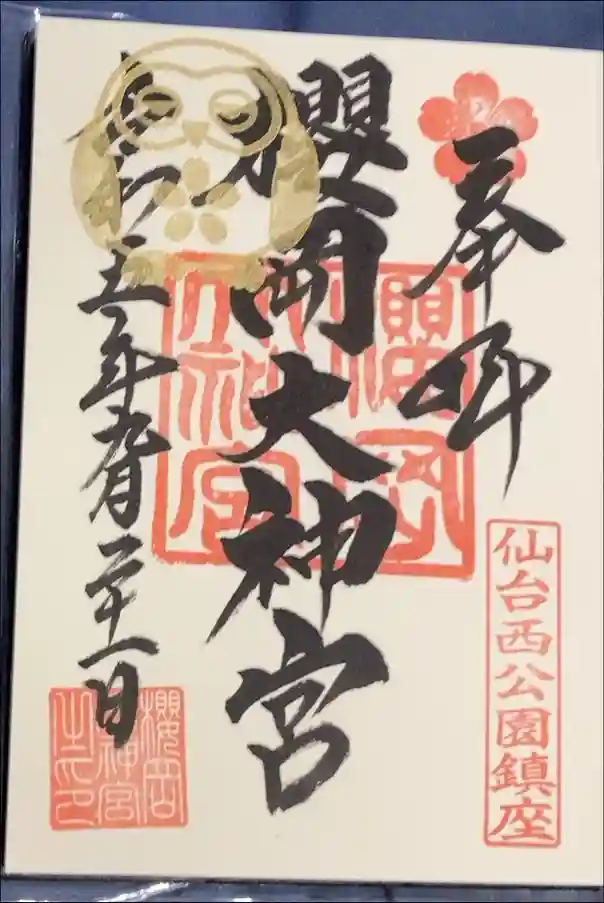 奉拝
仙台西公園鎮座
櫻岡大神宮
櫻岡大神宮
令和五年九月二十一日
櫻岡
神宮
之印